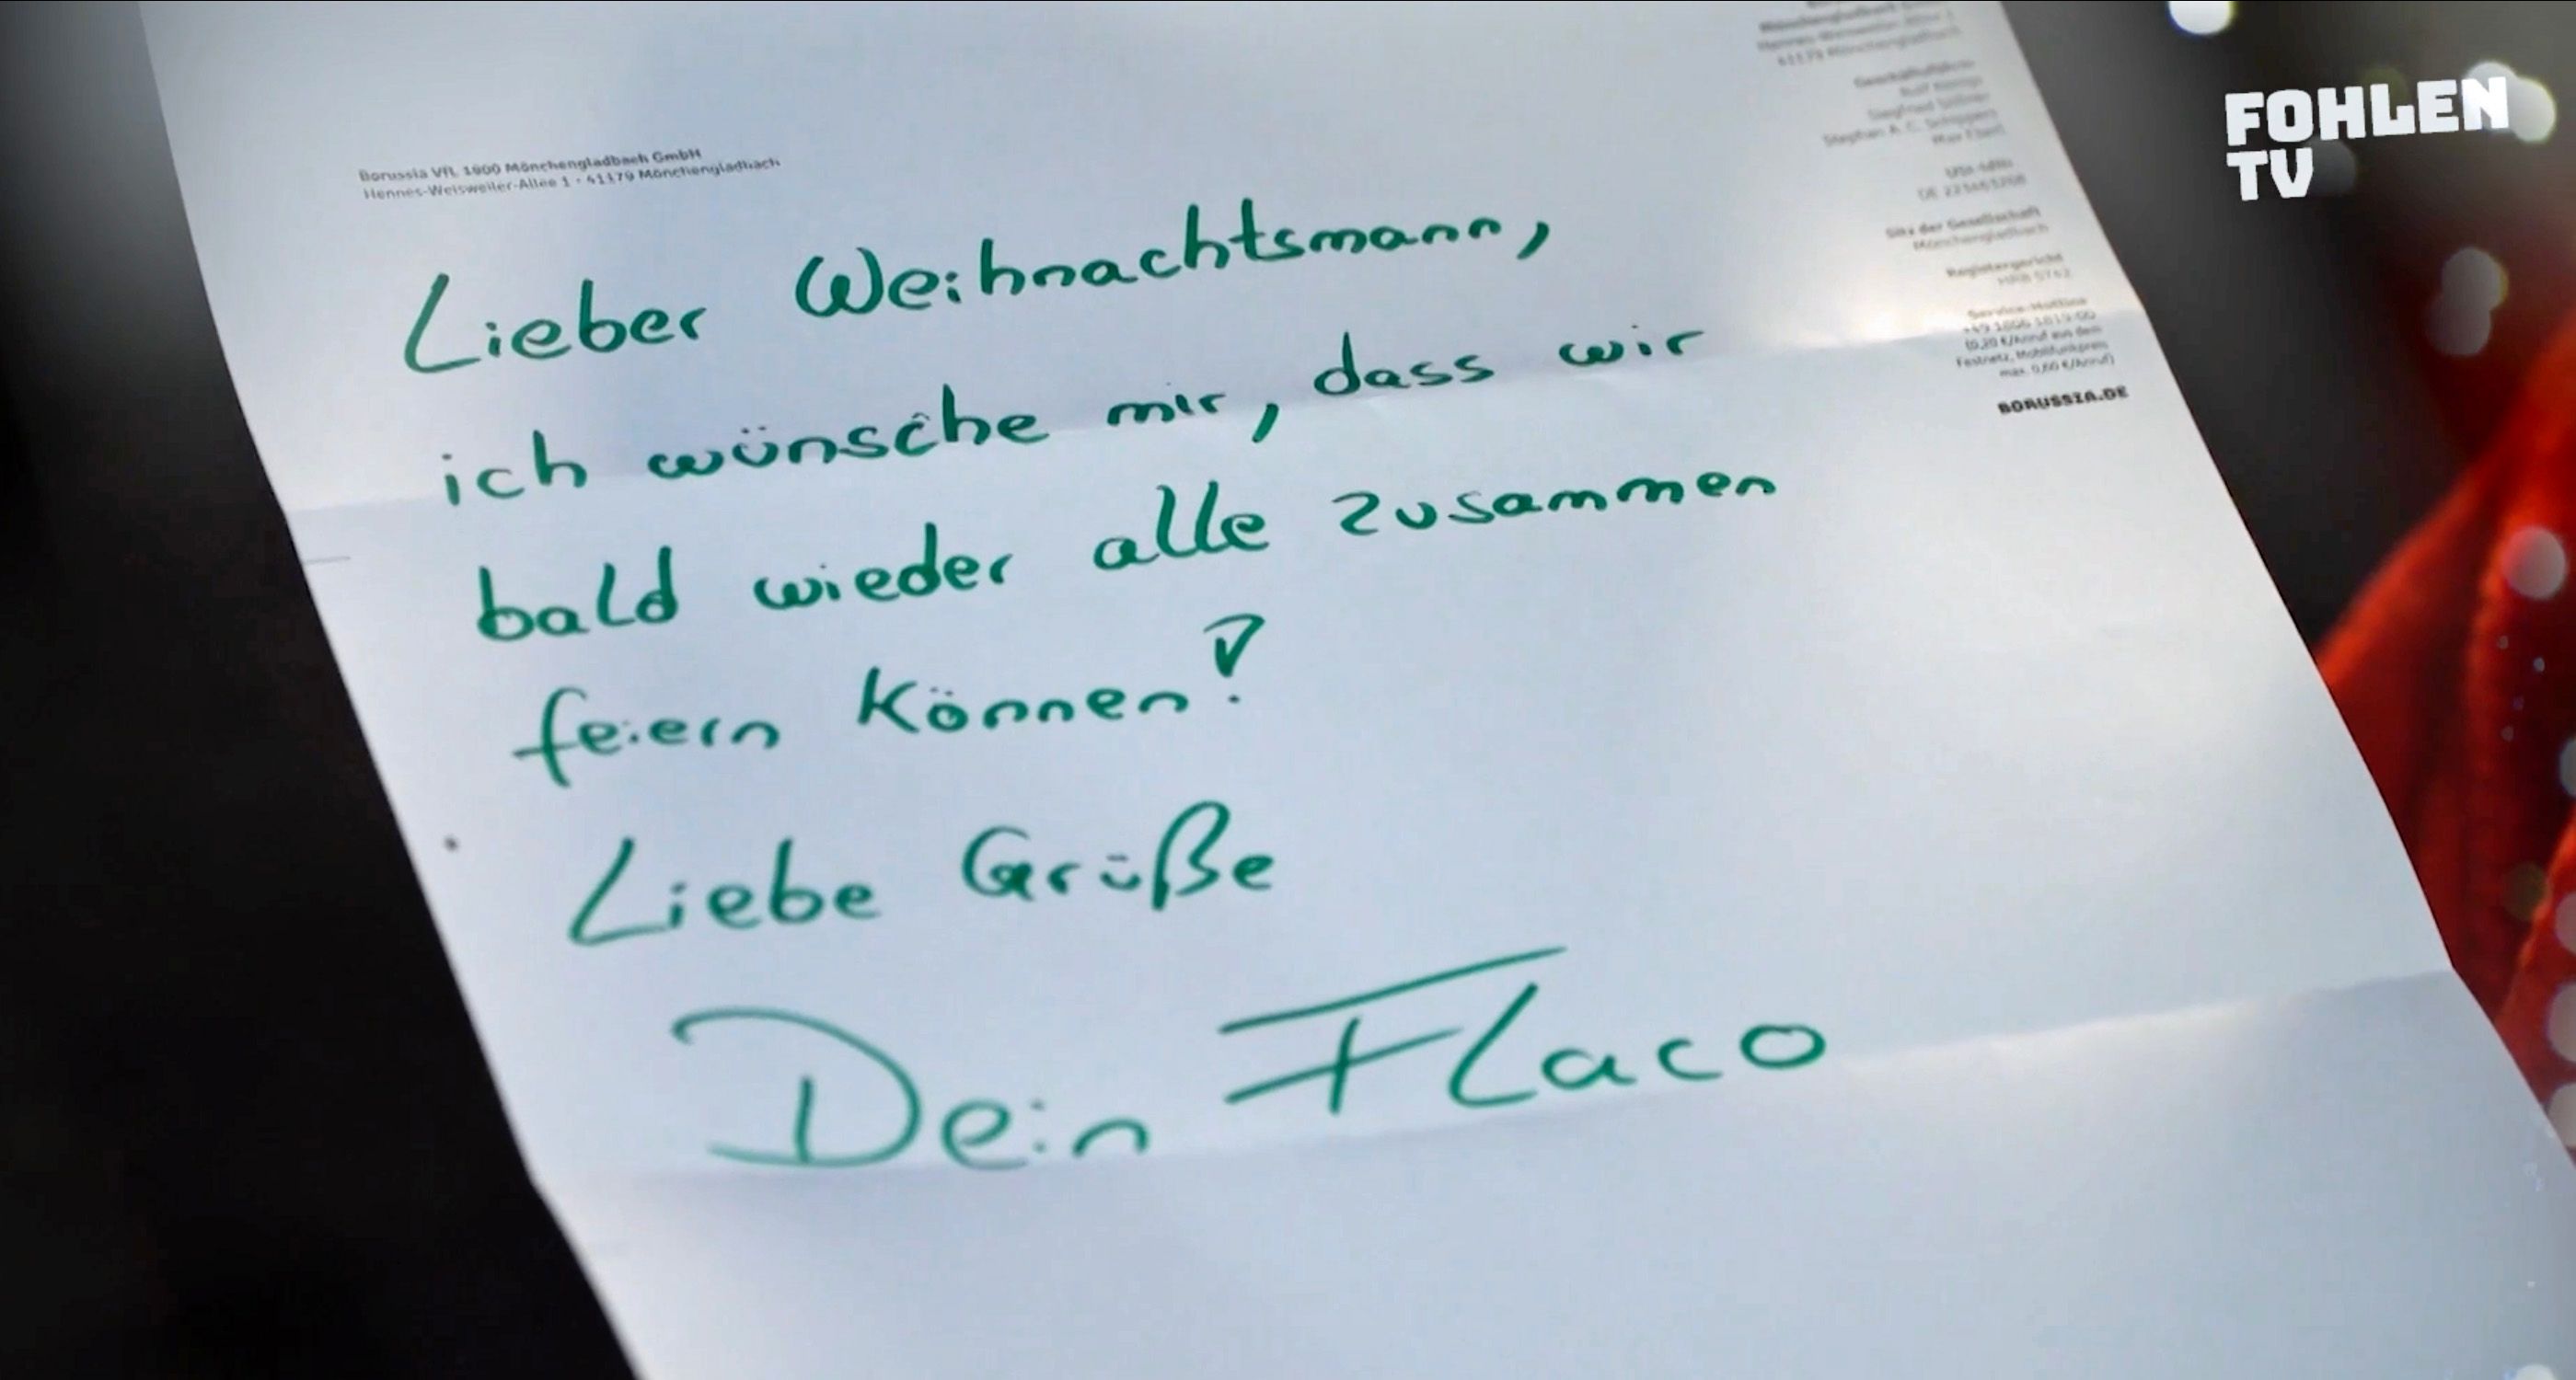 FOHLEN
TV
Borussia VfL 1900 Mönchengladbach GmbH
Hennes-Weisweiler-Allee 1 · 41179 Mönchengladbach
Lieber Weihnachtsmann,
ich wünsche mir, dass wir
bald wieder alle zusammen
feiern können!
Liebe Grüße
Dein Flaco
Mönchengladbach
Hennes-Weisweiler-Allee 1
41179 Mönchengladbach
Geschäftsführer
Siegfried Söllner
Stephan A. C. Schippers
Max Eberl
USt-IdNr.
Sitz der Gesellschaft
Mönchengladbach
Registergericht
HRB 5742
Service-Hotline
(0,20 €/Anruf aus dem
Festnetz, Mobilfunkpreis
max. 0,60 €/Anruf)
BORUSSIA.DE